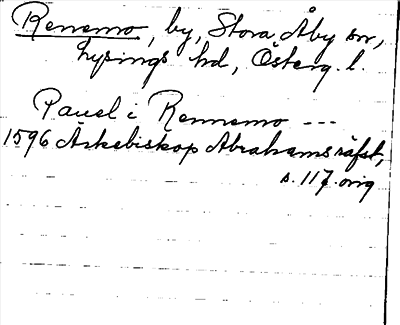 Renemo, by, Stora Åby sn,
Lysings hd, Österg. l.
Pauel i Rennemo ---
1596 Ärkebiskop Abrahams räfst,
s. 117. orig